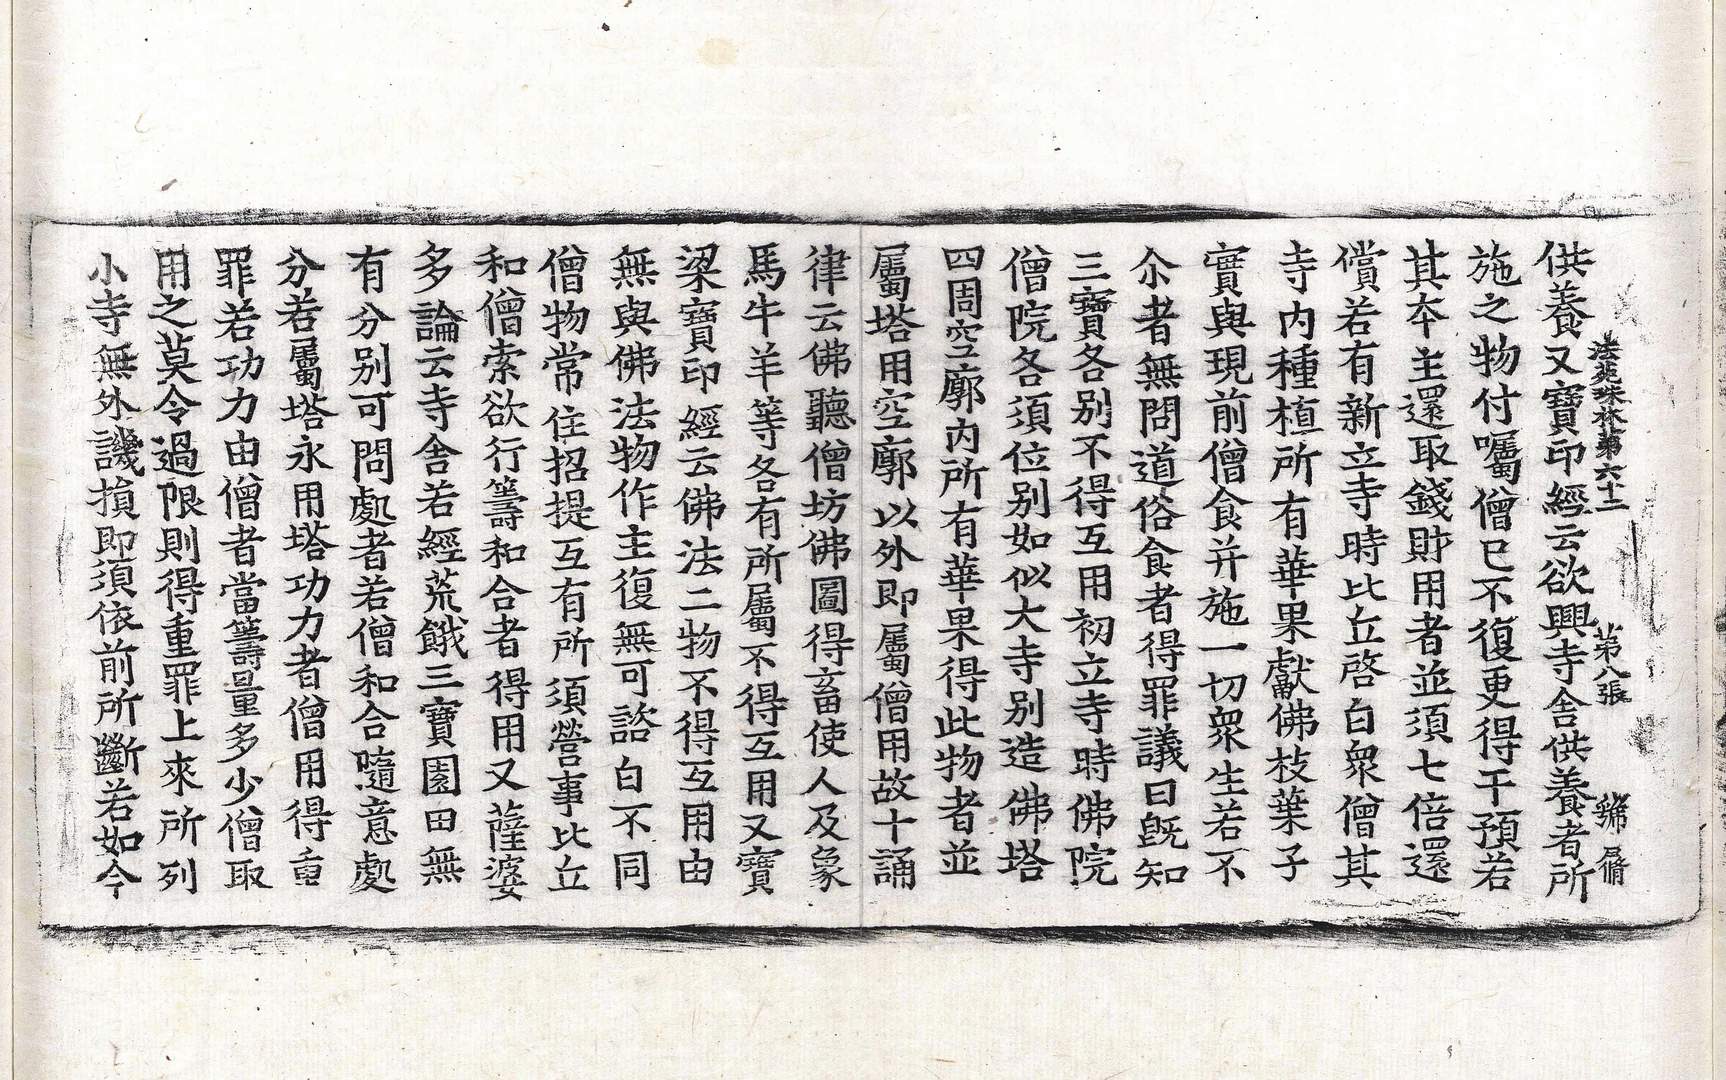 法苑珠林第六十二 第八張
供養又寶印經云欲興寺舍供養者所
施之物付囑僧已不復更得干預若
其夲主還取錢財用者並須七倍還
償若有新立寺時比丘啓白衆僧其
寺内種植所有華果獻佛枝葉子
實與現前僧食并施一切衆生若不
尒者無問道俗食者得罪議曰旣知
三寶各别不得互用初立寺時佛院
僧院各須位别如似大寺别造佛塔
四周空廓内所有華果得此物者並
屬塔用空廓以外即屬僧用故十誦
律云佛聽僧坊佛圖得畜使人及象
馬牛羊等各有所屬不得互用又寶
梁寶印經云佛法二物不得互用由
無與佛法物作主復無可諮白不同
僧物常住招提互有所須營事比丘
和僧索欲行籌和合者得用又薩婆
多論云寺舍若經荒餓三寶園田無
有分别可問處者若僧和合隨意處
分若屬塔永用塔功力者僧用得重
罪若功力由僧者當籌量多少僧取
用之莫令過限則得重罪上來所列
小寺無外譏損即須依前所斷若如今